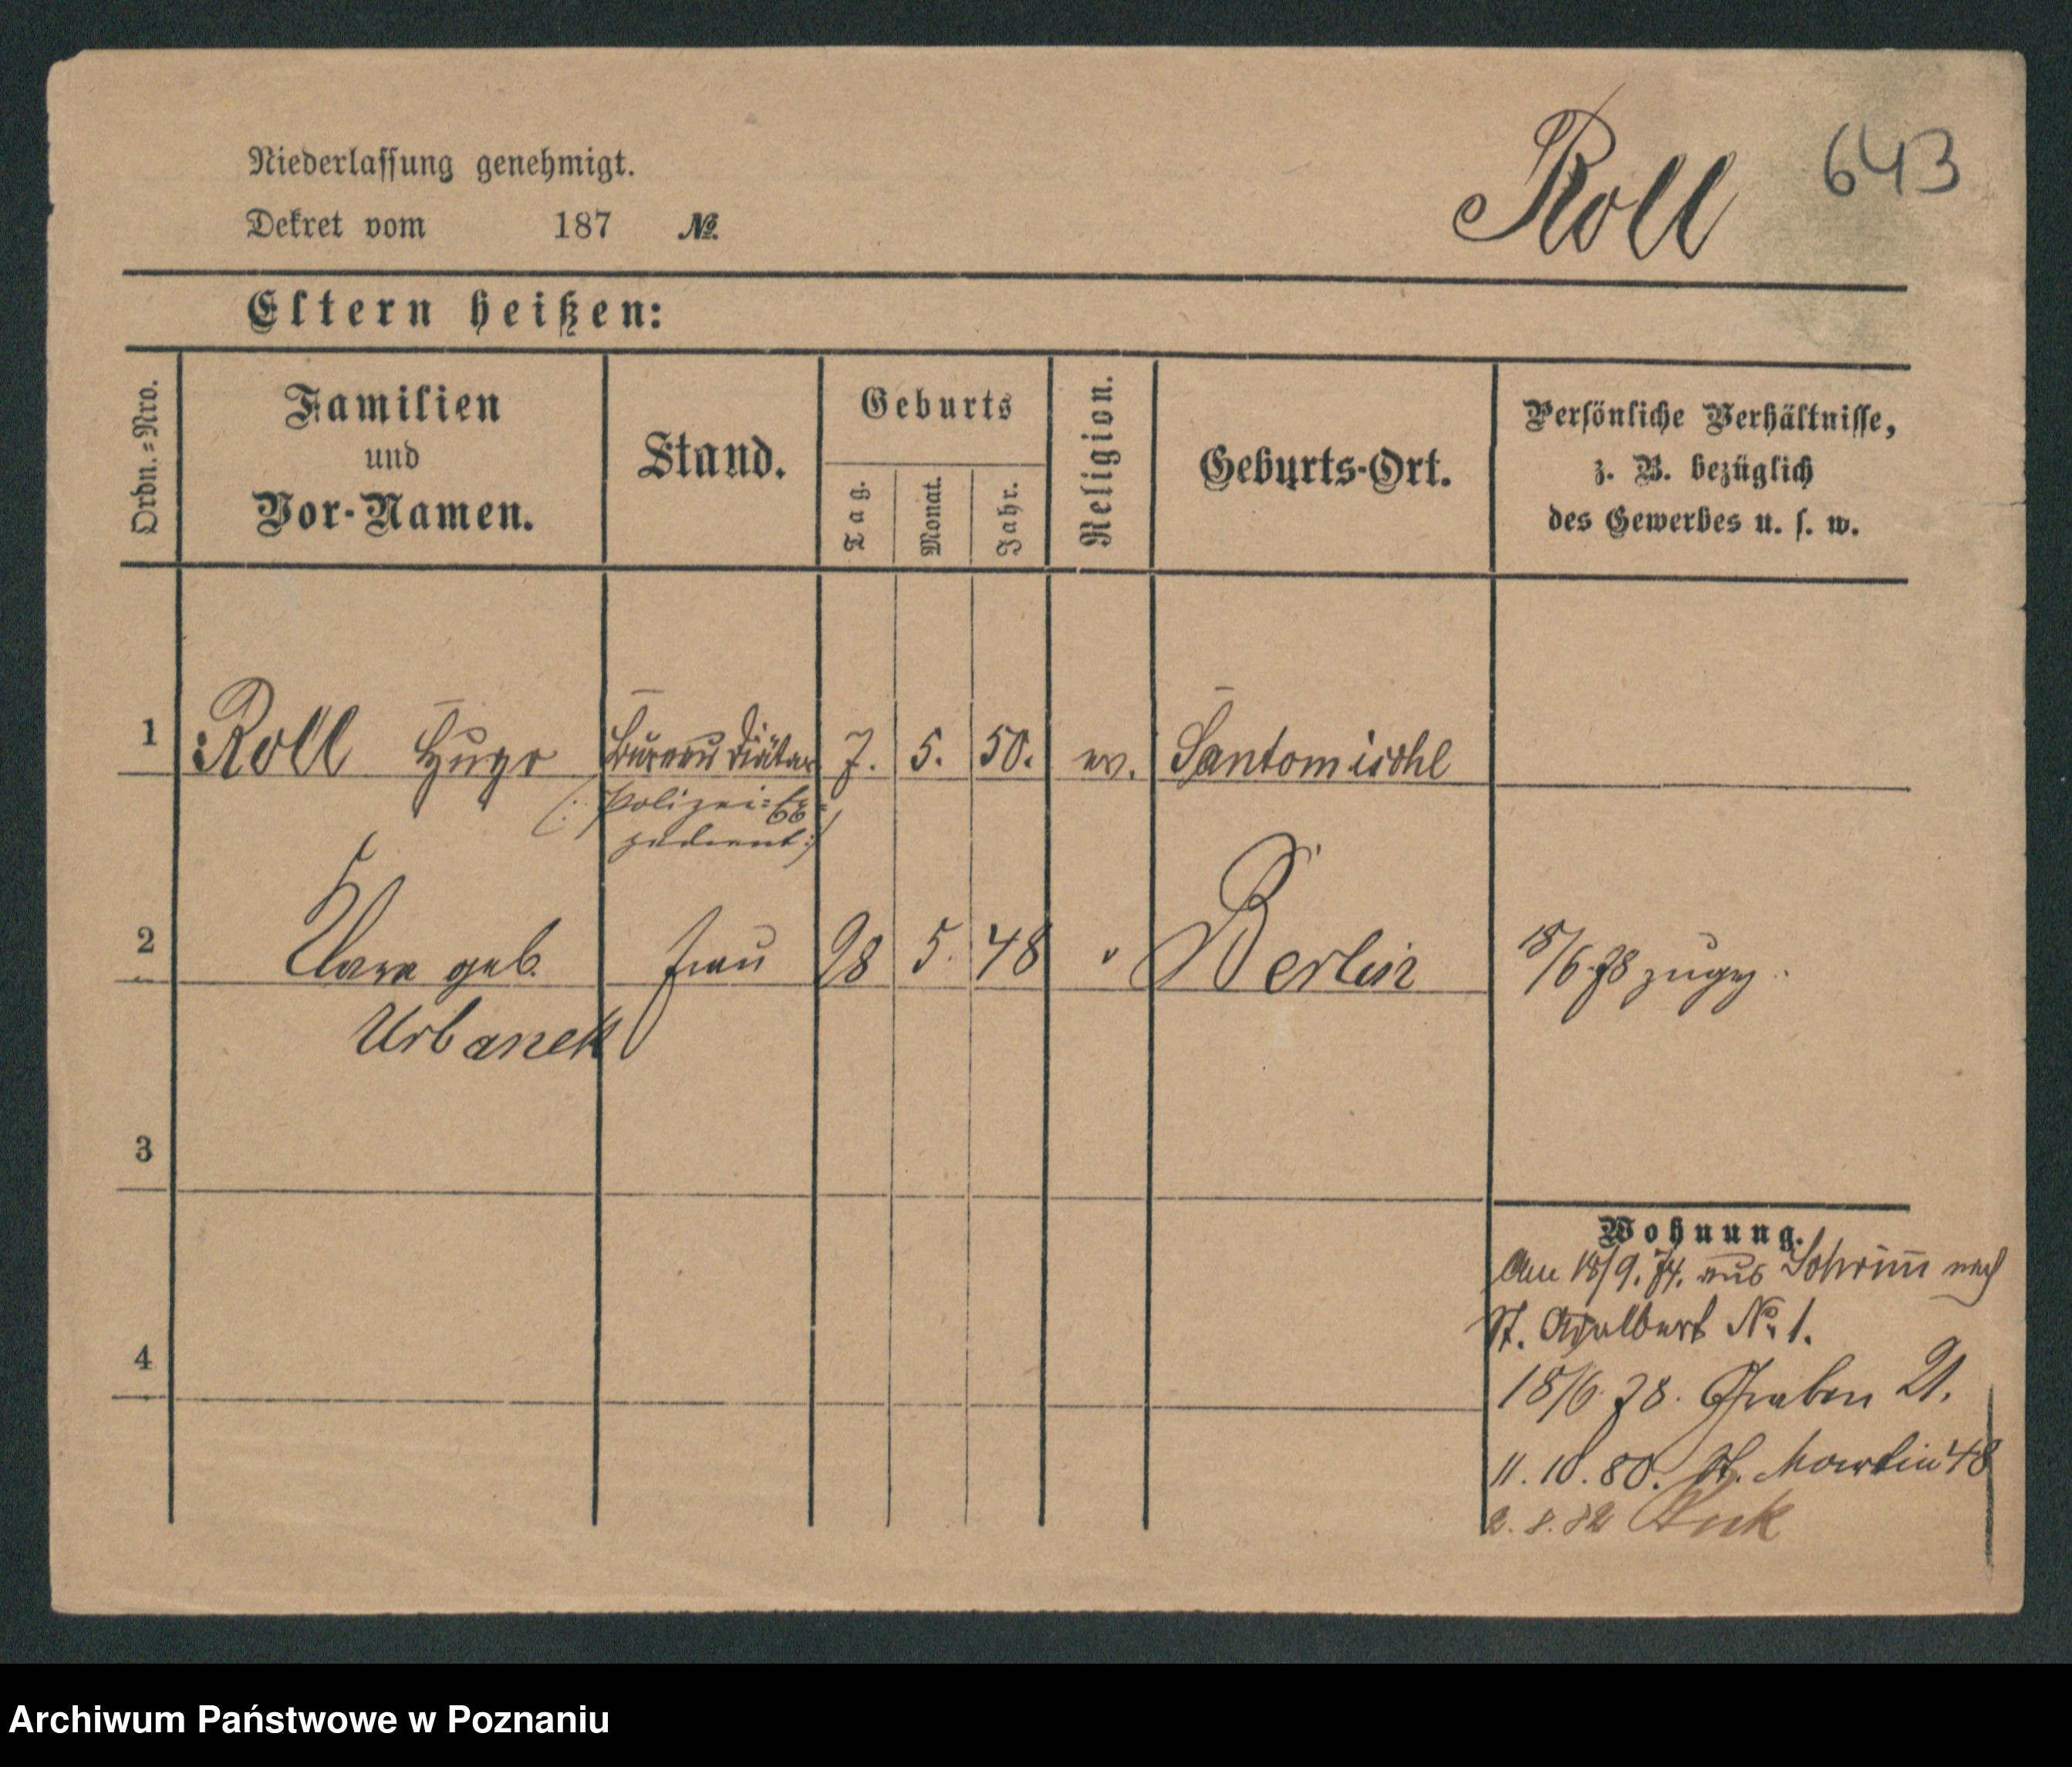 Roll 643
Niederlassung genehmigt.
Dekret vom 187 №
Eltern heißen:
Ordn.=Nro.
Familien
und
Vor-Namen.
Stand.
Geburts
Tag.
Monat.
Jahr.
Religion.
Geburts-Ort.
Persönliche Verhältnisse,
z. B. bezüglich
des Gewerbes u. s. w.
1 Roll Hugo Bureau Diätar 7. 5. 50. ev. Santomischl
(: Polizei=Ex=
pedient :)
2 Clara geb. Frau 28 5. 48 " Berlin 18/6.78 zugez.
Urbanek
3
Wohnung.
Am 18/9. 74. aus Schrimm nach
St. Adalbert No. 1.
4
18/6. 78. Graben 21.
11. 10. 80. St. Martin 48
2. 8. 82
Archiwum Państwowe w Poznaniu